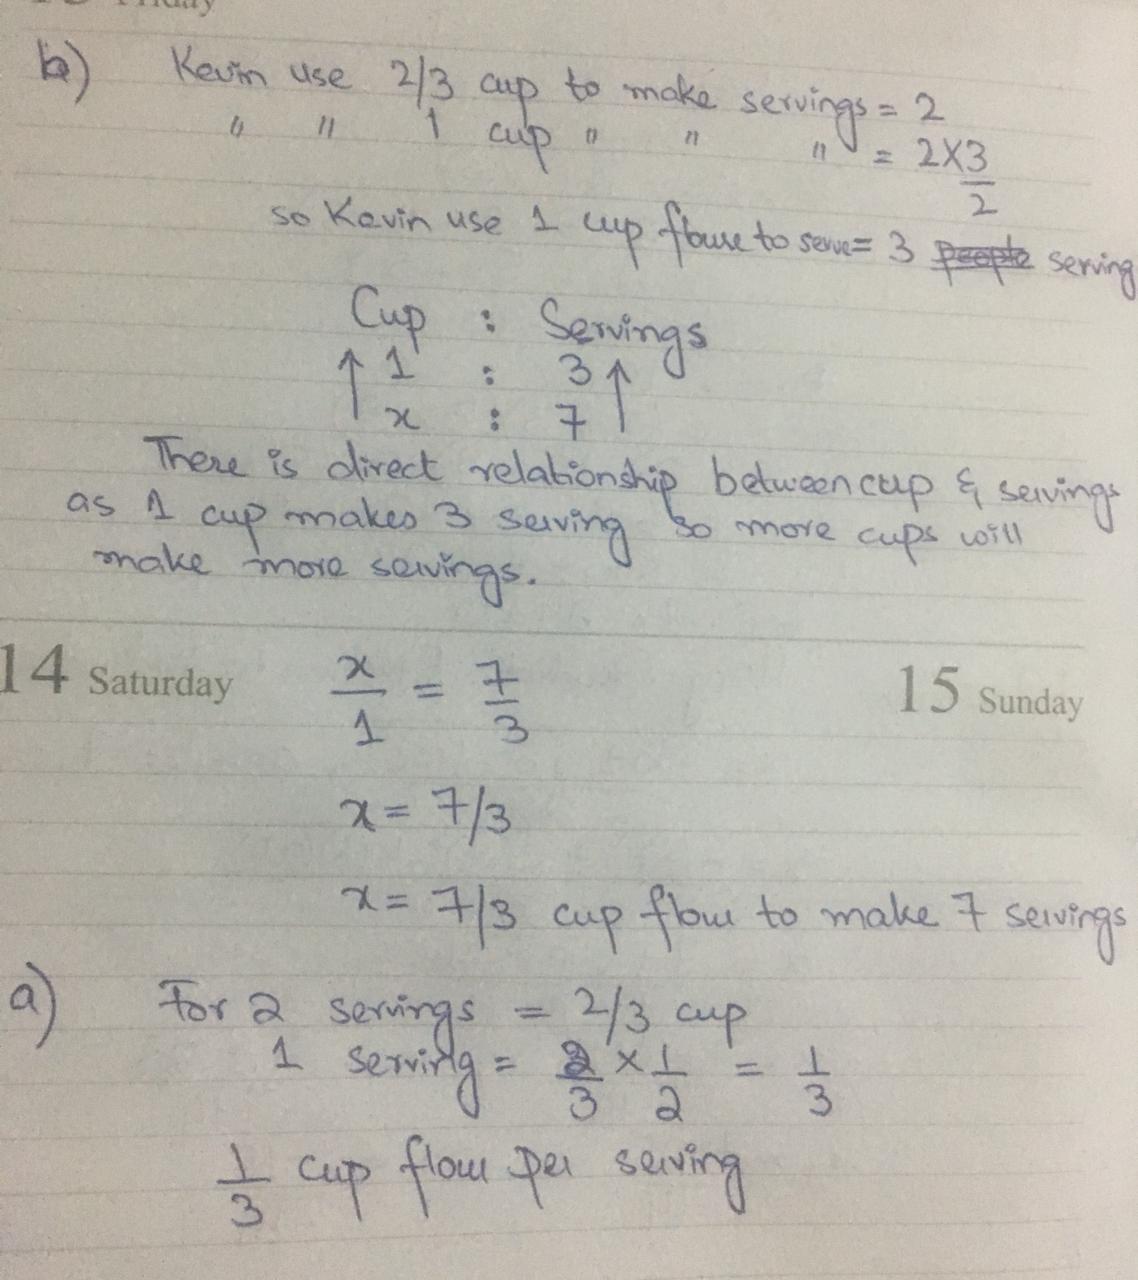 b) Kevin use 2/3 cup to make servings = 2
" " 1 cup " " " = 2×3/2
so Kevin use 1 cup floure to serve = 3 serving
Cup : Servings
↑ 1 : 3 ↑
x : 7
There is direct relationship between cup & servings
as 1 cup makes 3 serving so more cups will
make more servings.
14 Saturday
15 Sunday
x/1 = 7/3
x = 7/3
x = 7/3 cup flour to make 7 servings
a) For 2 servings = 2/3 cup
1 serving = 2/3 × 1/2 = 1/3
1/3 cup flour per serving